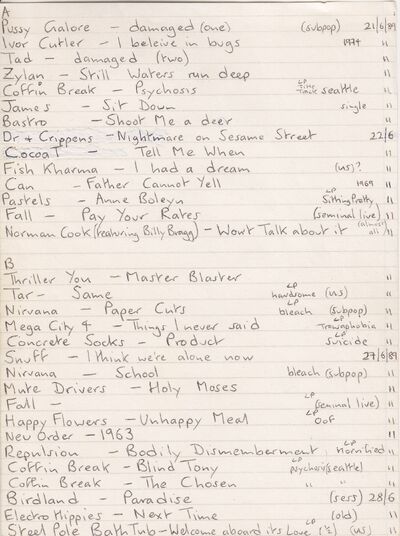 A
Pussy Galore - damaged (one) (subpop) 21/6/89
Ivor Cutler - I beleive in bugs 1974 "
Tad - damaged (two) "
Zylan - Still Waters run deep "
Coffin Break - Psychosis LP seattle "
James - Sit Down single "
Bastro - Shoot Me a deer "
Dr & Crippens - Nightmare on Sesame Street 22/6
Cocoa T - Tell Me When "
Fish Kharma - I had a dream (us)? "
Can - Father Cannot Yell 1969 "
Pastels - Anne Boleyn LP Sitting Pretty "
Fall - Pay Your Rates (seminal live) "
Norman Cook (featuring Billy Bragg) - Won't Talk about it (almost) all "
B
Thriller You - Master Blaster "
Tar - Same LP handsome (us) "
Nirvana - Paper Cuts LP bleach (subpop) "
Mega City 4 - Things I never said LP Tranzophobia "
Concrete Socks - Product LP suicide "
Snuff - I think we're alone now 27/6/89
Nirvana - School bleach (subpop) "
Mute Drivers - Holy Moses "
Fall - (seminal live) "
Happy Flowers - Unhappy Meal LP Oof "
New Order - 1963 "
Repulsion - Bodily Dismemberment LP Horrified "
Coffin Break - Blind Tony LP (seattle) "
Coffin Break - The Chosen " " "
Birdland - Paradise (sess) 28/6
Electro Hippies - Next Time (old) "
Steel Pole Bath Tub - Welcome aboard its Love LP (us) "